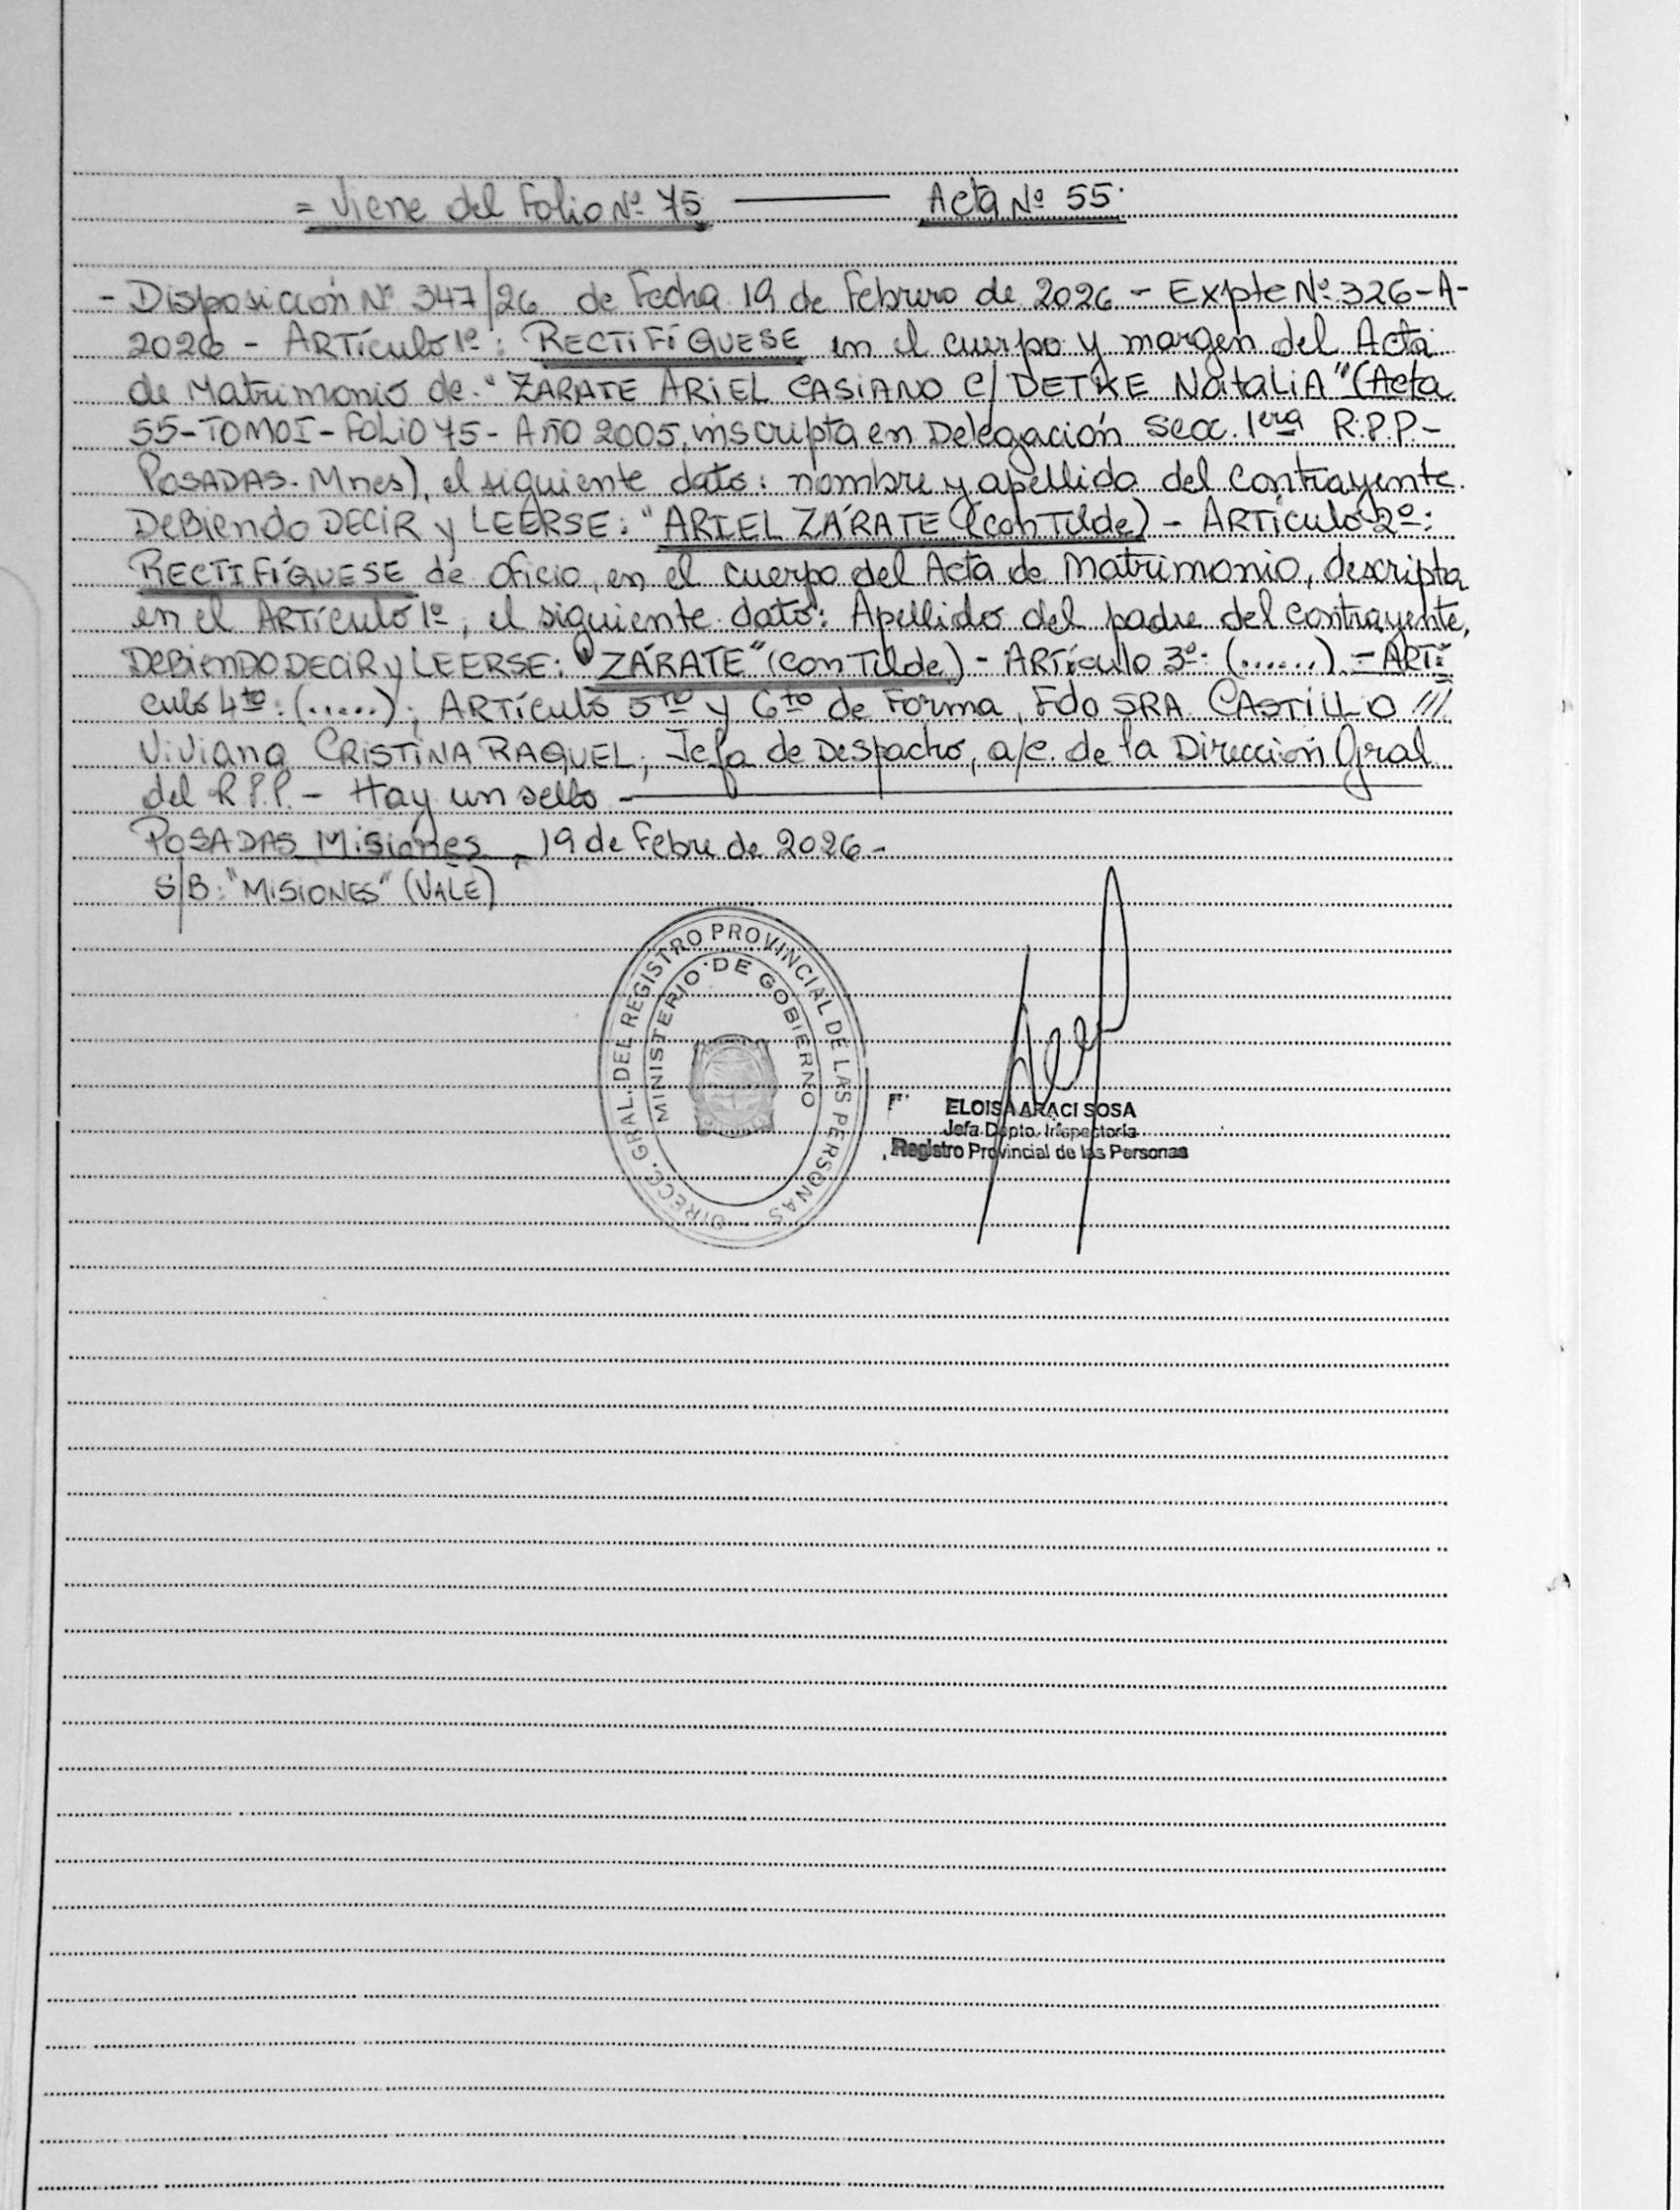 = Viene del Folio Nº 75 ——— Acta Nº 55.
- Disposición Nº 347/26 de Fecha 19 de Febrero de 2026 - Expte Nº 326-A-
2026 - ARTículo 1º: RECTIFÍQUESE en el cuerpo y margen del Acta
de Matrimonio de: "ZARATE ARIEL CASIANO C/ DETKE NataLiA" (Acta
55-TOMO I-FOLiO 75- AÑO 2005, inscripta en Delegación Secc. 1era R.P.P.-
POSADAS- Mnes), el siguiente dato: nombre y apellido del contrayente.
DEBiendo DECiR y LEERSE: "ARIEL ZÁRATE (con Tilde) - ARTículo 2º:
RECTIFÍQUESE de oficio, en el cuerpo del Acta de Matrimonio, descripta
en el ARTículo 1º, el siguiente dato: Apellido del padre del contrayente,
DEBiENDO DECiR y LEERSE: "ZÁRATE" (con Tilde) - ARTículo 3º: (......) - ARTí
culo 4to: (.....); ARTículo 5to y 6to de Forma, Fdo SRA CASTiLLO ///
ViViana CRiSTiNA RAQUEL, Jefa de Despacho, a/c. de la Dirección Gral
del R.P.P. - Hay un sello -
POSADAS Misiones, 19 de Febre de 2026 -
S/B: "MiSiONES" (VALE)
DIRECC. GRAL. DEL REGISTRO PROVINCIAL DE LAS PERSONAS
MINISTERIO DE GOBIERNO
ELOISA ARACI SOSA
Jefa Dpto. Inspectoría
Registro Provincial de las Personas